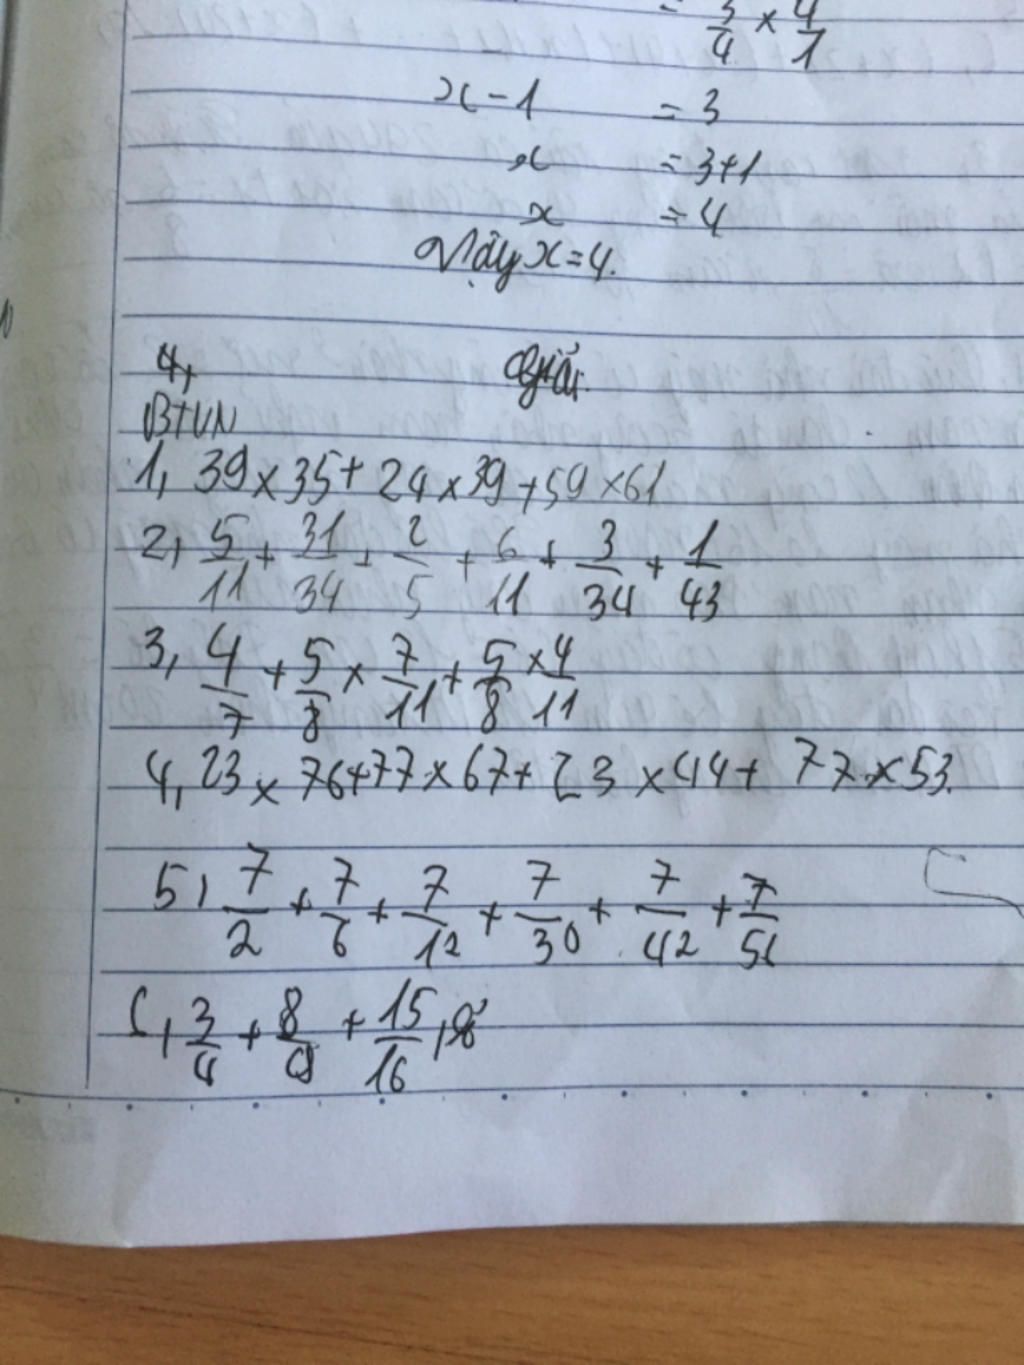 = 3/4 × 4/1
x - 1 = 3
x = 3+1
x = 4
Vậy x = 4.
4, Giải.
BTVN
1, 39 × 35 + 24 × 39 + 59 × 61
2, 5/11 + 31/34 + 2/5 + 6/11 + 3/34 + 1/43
3, 4/7 + 5/8 × 7/11 + 5/8 × 4/11
4, 23 × 76 + 77 × 67 + 23 × 44 + 77 × 53.
5, 7/2 + 7/6 + 7/12 + 7/30 + 7/42 + 7/56
6, 3/4 + 8/9 + 15/16,